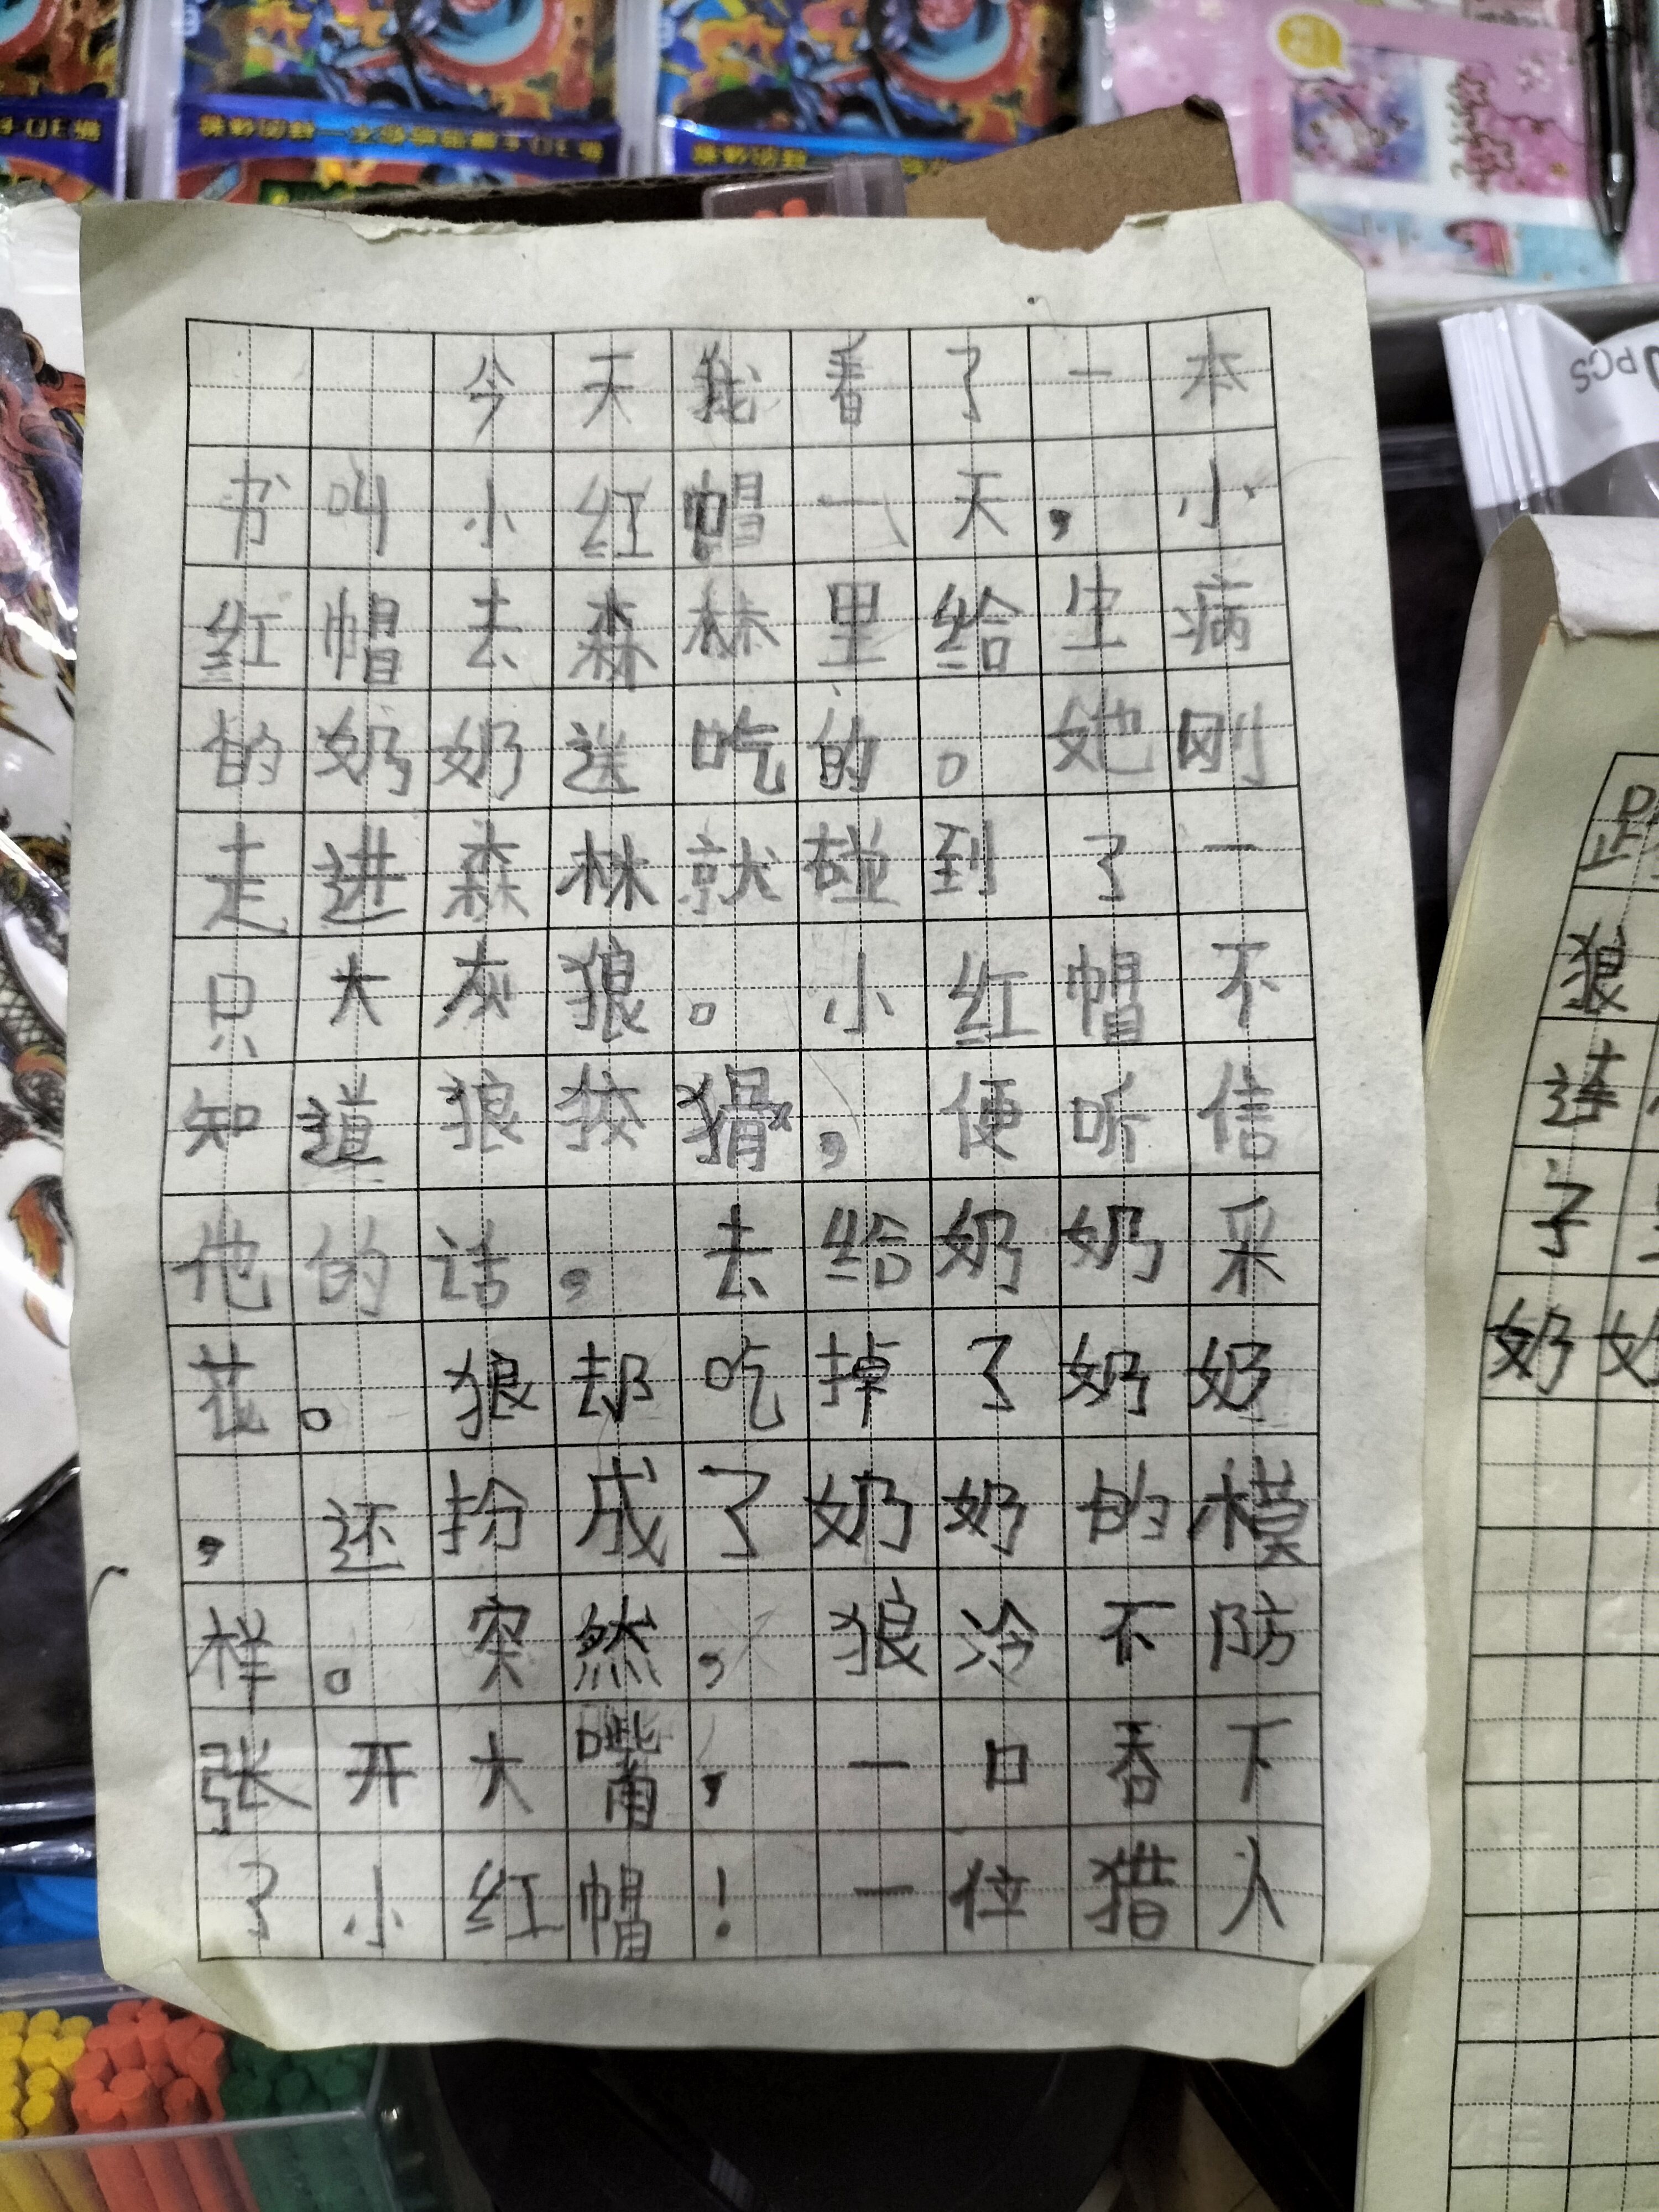 今天我看了一本
书叫小红帽一天，小
红帽去森林里给生病
的奶奶送吃的。她刚
走进森林就碰到了一
只大灰狼。小红帽不
知道狼狡猾，便听信
他的话，去给奶奶采
花。狼却吃掉了奶奶
，还扮成了奶奶的模
样。突然，狼冷不防
张开大嘴，一口吞下
了小红帽！一位猎人
狼
子
奶
PCS